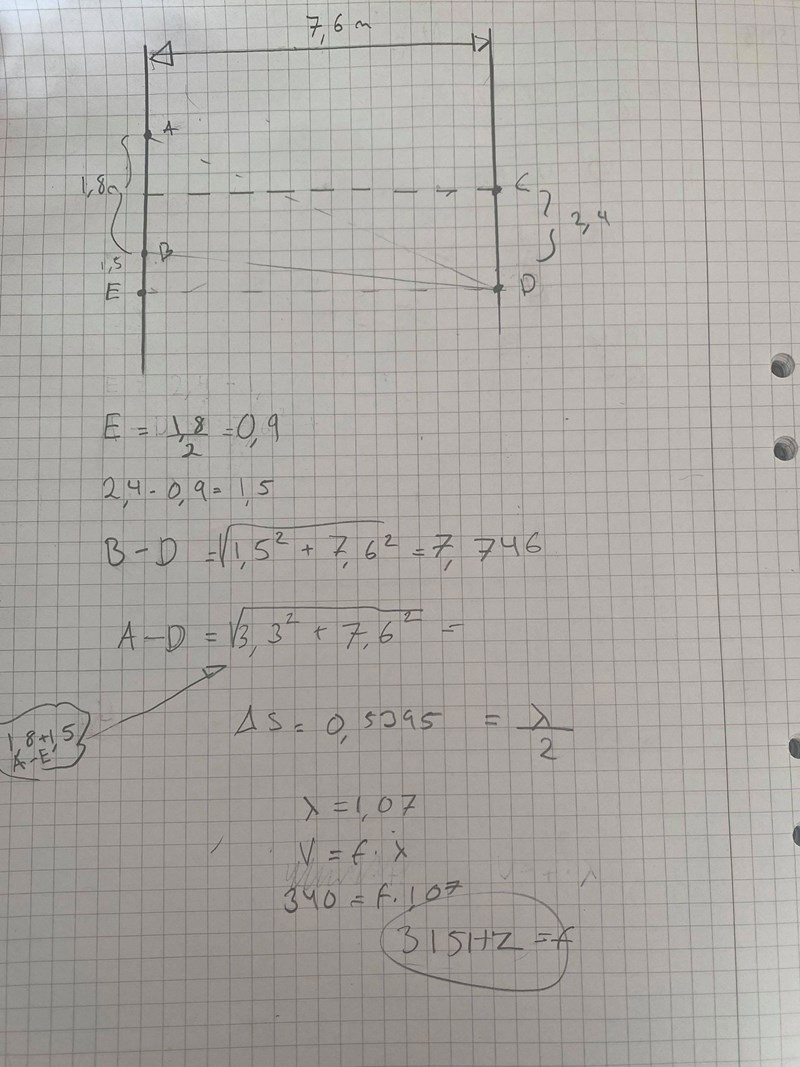 7,6 m
A
1,8m
C
2,4
B
1,5
E
D
E = 1,8/2 = 0,9
2,4 - 0,9 = 1,5
B - D = √1,5² + 7,6² = 7,746
A - D = √3,3² + 7,6² =
1,8+1,5
A-E
ΔS = 0,5395 = λ/2
λ = 1,07
V = f · λ
340 = f · 1,07
315Hz = f